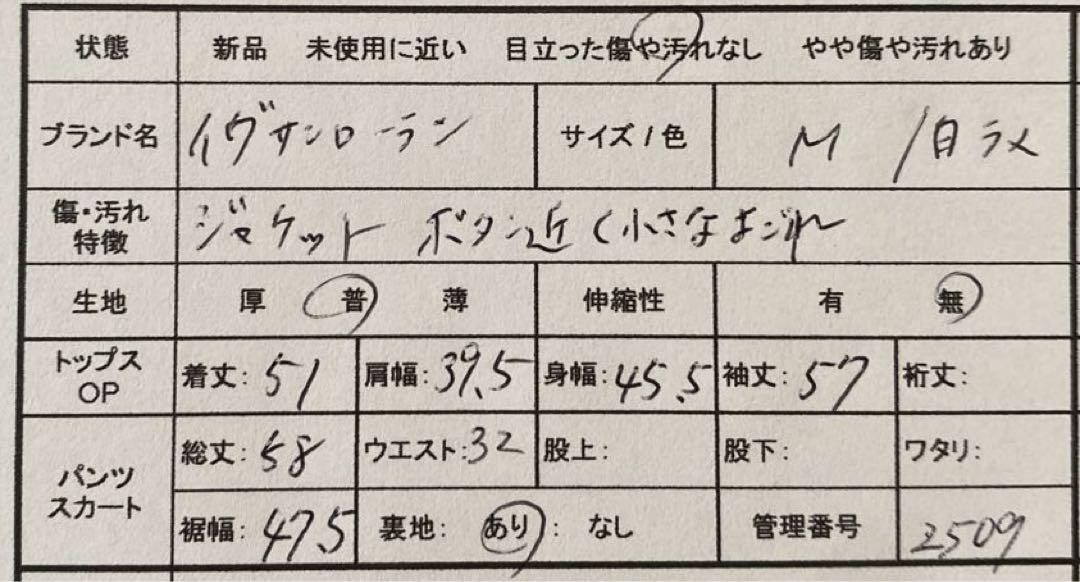 状態 新品 未使用に近い 目立った傷や汚れなし やや傷や汚れあり
ブランド名 イヴサンローラン サイズ/色 M /白ラメ
傷・汚れ
特徴 ジャケット ボタン近く小さなよごれ
生地 厚 普 薄 伸縮性 有 無
トップス
OP 着丈: 51 肩幅: 39.5 身幅: 45.5 袖丈: 57 裄丈:
パンツ
スカート
総丈: 58 ウエスト: 32 股上: 股下: ワタリ:
裾幅: 47.5 裏地: あり : なし 管理番号 2509